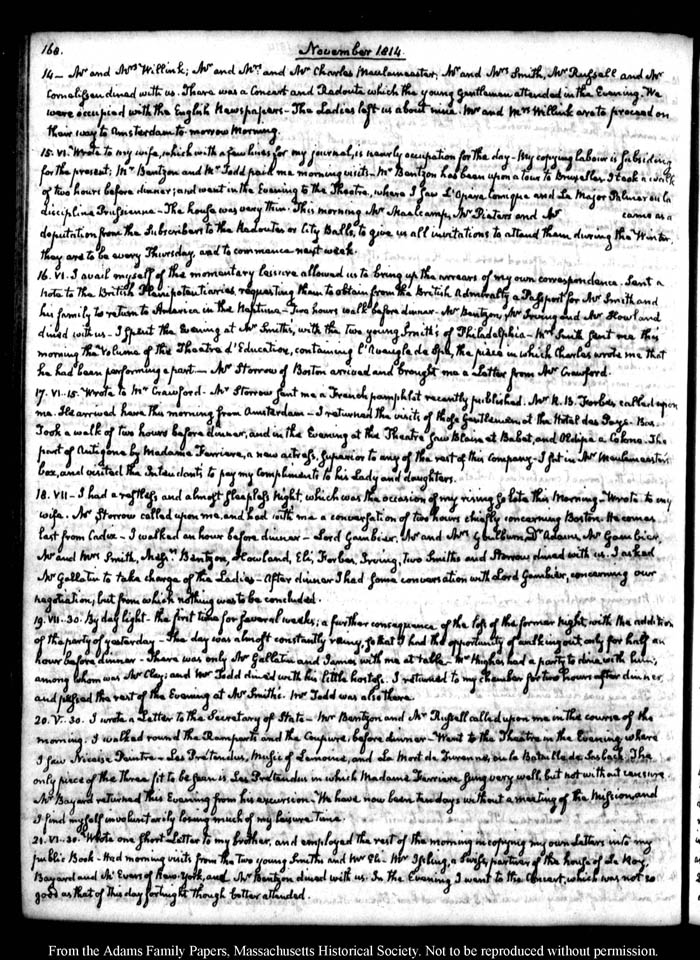 168.
November 1814.
14— Mr and Mrs Willink; Mr and Mrs and Mr Charles Meulemeester; Mr and Mrs Smith, Mr Russell and Mr
Cornelissen dined with us. There was a Concert and Redoute which the young Gentlemen attended in the Evening. We
were occupied with the English Newspapers— The Ladies left us about nine. Mr and Mrs Willink are to proceed on
their way to Amsterdam to-morrow Morning.
15. VI. Wrote to my wife, which with a few lines for my journal, is nearly occupation for the day— My copying labour is subsiding
for the present; Mr Bentzon and Mr Todd paid me morning visits— Mr Bentzon has been upon a tour to Bruxelles. I took a walk
of two hours before dinner; and went in the Evening to the Theatre, where I saw L'Opera Comique and Le Major Palmer ou la
discipline Prussienne— The house was very thin. This morning Mr Maelcamp, Mr Pieters and Mr came as a
deputation from the Subscribers to the Redoutes or City Balls, to give us all invitations to attend them during the Winter.
they are to be every Thursday, and to commence next week.
16. VI. I avail myself of the momentary leisure allowed us to bring up the arrears of my own correspondence. Sent a
Note to the British Plenipotentiaries requesting them to obtain from the British Admiralty a Passport for Mr Smith and
his family to return to America in the Neptune— Two hours walk before dinner. Mr Bentzon, Mr Irving and Mr Howland
dined with us— I spent the Evening at Mr Smith's, with the two young Smiths of Philadelphia— Mrs Smith sent me this
morning the Volume of the Theatre d'Education, containing l'Aveugle de Spa, the piece in which Charles wrote me that
he had been performing a part— Mr Storrow of Boston arrived and brought me a Letter from Mr Crawford.
17. VI. 15. Wrote to Mr Crawford— Mr Storrow sent me a French pamphlet recently published. Mr R. B. Forbes called upon
me. He arrived here this morning from Amsterdam— I returned the visits of these Gentlemen at the Hotel des Pays-Bas.
Took a walk of two hours before dinner, and in the Evening at the Theatre saw Blaise et Babet, and Oedipe a Colone. The
part of Antigone by Madame Ferriere, a new actress, superior to any of the rest of this Company— I sat in Mr Meulemeester's
box, and visited the Intendant's to pay my Compliments to his Lady and daughters.
18. VII— I had a restless and almost sleepless Night, which was the occasion of my rising so late this Morning— Wrote to my
wife. Mr Storrow called upon me, and had with me a conversation of two hours chiefly concerning Boston. He comes
last from Cadiz— I walked an hour before dinner— Lord Gambier, Mr and Mrs Goulburn, Dr Adams, Mr Gambier,
Mr and Mrs Smith, Messrs Bentzon, Howland, Eli, Forbes, Irving, two Smiths and Storrow dined with us. I asked
Mr Gallatin to take charge of the Ladies— After dinner I had some conversation with Lord Gambier, concerning our
negotiation; but from which nothing was to be concluded.
19. VII. 30. By day light— the first time for several weeks; a further consequence of the loss of the former Night, with the addition
of the party of yesterday— The day was almost constantly rainy, so that I had the opportunity of walking out only for half an
hour before dinner— There was only Mr Gallatin and James with me at table. Mr Hughes had a party to dine with him;
among whom was Mr Clay; and Mr Todd dined with his little hostess. I returned to my chamber for two hours after dinner
and passed the rest of the Evening at Mr Smith's. Mr Todd was also there.
20. V. 30. I wrote a Letter to the Secretary of State— Mr Bentzon and Mr Russell called upon me in the course of the
morning. I walked round the Ramparts and the Coupure, before dinner— Went to the Theatre in the Evening, where
I saw Nicaise Peintre— Les Pretendus, Music of Lemoine, and La Mort de Turenne, ou la Bataille de Sasbach. The
only piece of the three fit to be seen is Les Pretendus in which Madame Ferriere sung very well, but not without censure.
Mr Bayard returned this Evening from his excursion. We have now been ten days without a meeting of the Mission, and
I find myself involuntarily losing much of my leisure Time.
21. VI. 30. Wrote one short Letter to my brother, and employed the rest of the morning in copying my own Letters into my
public Book— Had morning visits from the two young Smiths and Mr Eli. Mr Iselin, a Swiss, partner of the house of Le Roy,
Bayard and McEvers of New-York, and Mr Bentzon dined with us. In the Evening I went to the Concert, which was not so
good as that of this day fortnight though better attended.
From the Adams Family Papers, Massachusetts Historical Society. Not to be reproduced without permission.